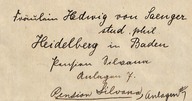 Fräulein Hedwig von Saenger
stud. phil
Heidelberg in Baden
Pension Silvana
Anlagen 7.
Pension Silvana, Anlagen